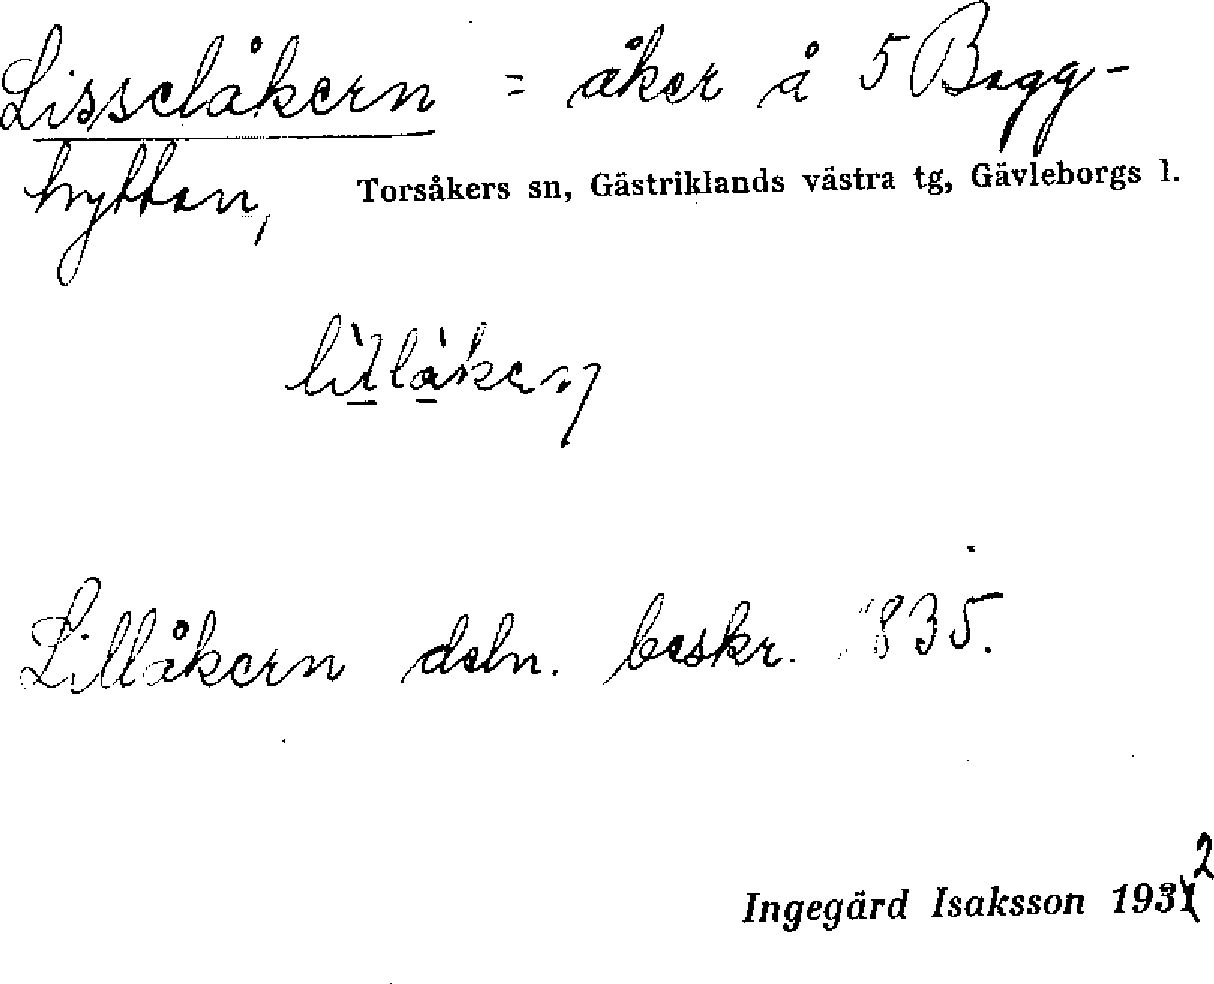 Lisselåkern = åker å 5 Bagg-
hyttan, Torsåkers sn, Gästriklands västra tg, Gävleborgs l.
Lillåkern deln. beskr. 1835.
Ingegärd Isaksson 1932